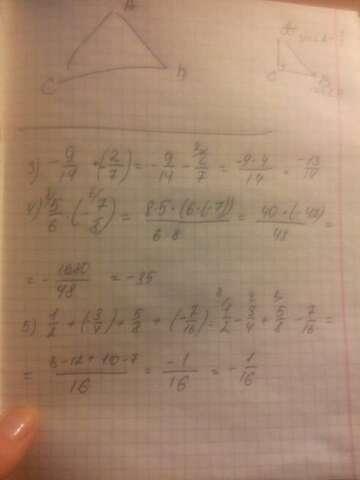 A
C
3) -9/14 + (-2/7) = -9/14 - 2/7 = -9-4/14 = -13/14
4) 5/6 · (-7/8) = 8·5·(6·(-7))/6·8 = 40·(-42)/48 =
= -1680/48 = -35
5) 1/2 + (-3/4) + 5/8 + (-7/16) = 1/2 - 3/4 + 5/8 - 7/16 =
= 8-12+10-7/16 = -1/16 = -1/16